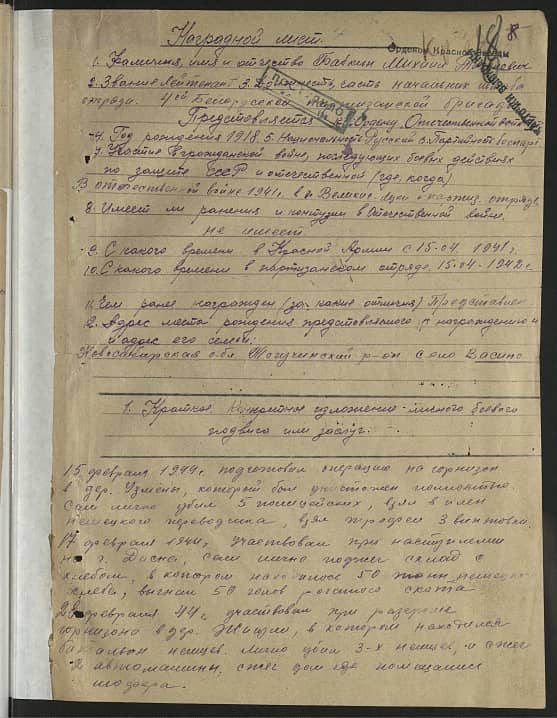 Наградной лист.
Орденом Красной Звезды
1. Фамилия, имя и отчество Бабкин Михаил
2. Звание Лейтенант 3. Должность, часть начальник штаба
отряда. 4ой Белорусской партизанской бригады
Представляется к Ордену Отечественной
4. Год рождения 1918 5. Национальность Русский 6. Партийность
7. Участие в гражданской войне, последующих боевых действиях
по защите СССР и отечественной (где, когда)
В отечественной войне 1941г. в Великие Луки партиз. отряде,
8. Имеет ли ранения и контузии в Отечественной войне.
не имеет
9. С какого времени в Красной Армии с 15-04 1941г
10. С какого времени в партизанском отряде, 15-04-1942г.
11. Чем ранее награжден (за какие отличия) Представлен
12. Адрес места рождения представляемого к награждению и
адрес его семьи:
Новосибирская обл. Тогучинский р-он село
1. Краткое конкретное изложение личного боевого
подвига или заслуг.
15 февраля 1944г. подготовил операцию на гарнизон
в дер. Узмены, который был уничтожен полностью.
Сам лично убил 5 полицейских, взял в плен
немецкого переводчика, взял трофеи 3 винтовки.
17 февраля 1944г. участвовал при наступлении
на г. Дисна, сам лично поджег склад с
хлебом, в котором находилось 50 тонн немецкого
хлеба, выгнал 50 голов рогатого скота
28 февраля 44г. участвовал при разгроме
гарнизона в дер. в котором находился
батальон немцев. Лично убил 3-х немцев, и сжег
2 автомашины, сжег дом где помещались
шофера.